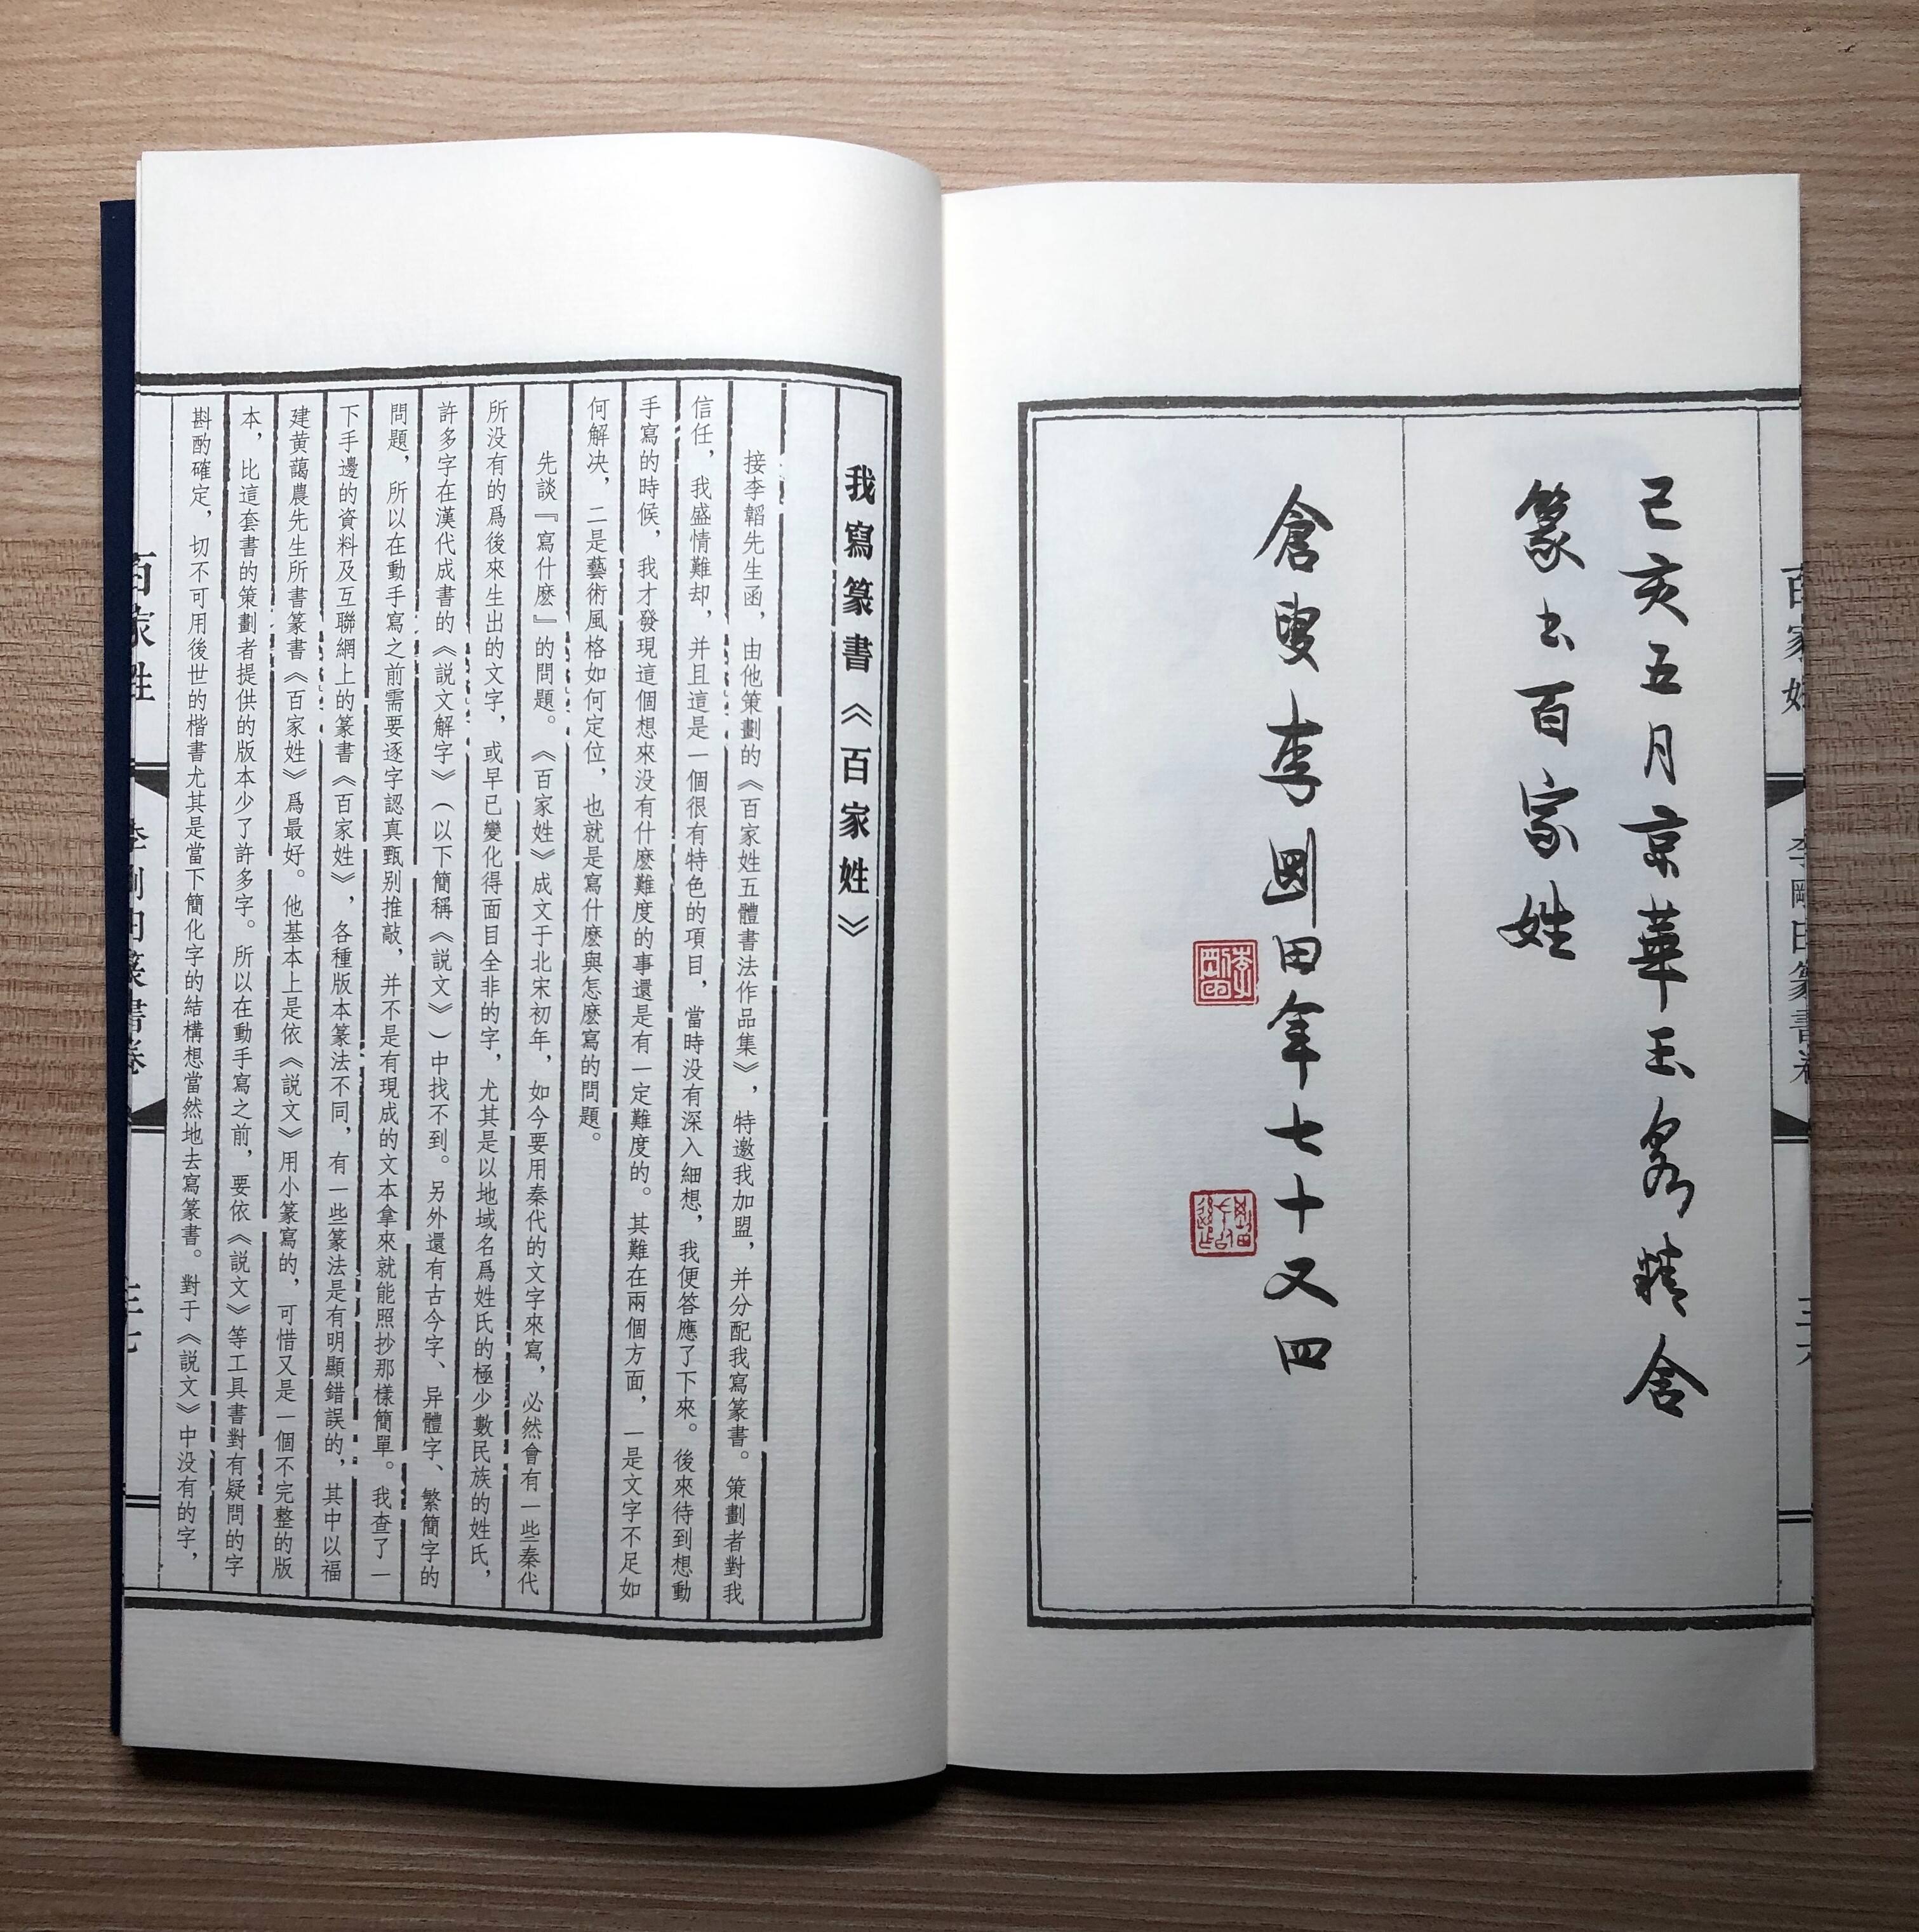 百家姓
李剛田篆書卷
三六
己亥五月京華玉泉精舍
篆书百家姓
倉叟李剛田年七十又四
我寫篆書《百家姓》
接李韜先生函，由他策劃的《百家姓五體書法作品集》，特邀我加盟，并分配我寫篆書。策劃者對我
信任，我盛情難却，并且這是一個很有特色的項目，當時没有深入細想，我便答應了下來。後來待到想動
手寫的時候，我才發現這個想來没有什麽難度的事還是有一定難度的。其難在兩個方面，一是文字不足如
何解决，二是藝術風格如何定位，也就是寫什麽與怎麽寫的問題。
先談『寫什麽』的問題。《百家姓》成文于北宋初年，如今要用秦代的文字來寫，必然會有一些秦代
所没有的爲後來生出的文字，或早已變化得面目全非的字，尤其是以地域名爲姓氏的極少數民族的姓氏，
許多字在漢代成書的《説文解字》（以下簡稱《説文》）中找不到。另外還有古今字、异體字、繁簡字的
問題，所以在動手寫之前需要逐字認真甄别推敲，并不是有現成的文本拿來就能照抄那樣簡單。我查了一
下手邊的資料及互聯網上的篆書《百家姓》，各種版本篆法不同，有一些篆法是有明顯錯誤的，其中以福
建黄藹農先生所書篆書《百家姓》爲最好。他基本上是依《説文》用小篆寫的，可惜又是一個不完整的版
本，比這套書的策劃者提供的版本少了許多字。所以在動手寫之前，要依《説文》等工具書對有疑問的字
斟酌確定，切不可用後世的楷書尤其是當下簡化字的結構想當然地去寫篆書。對于《説文》中没有的字，
百家姓
李剛田篆書卷
三七